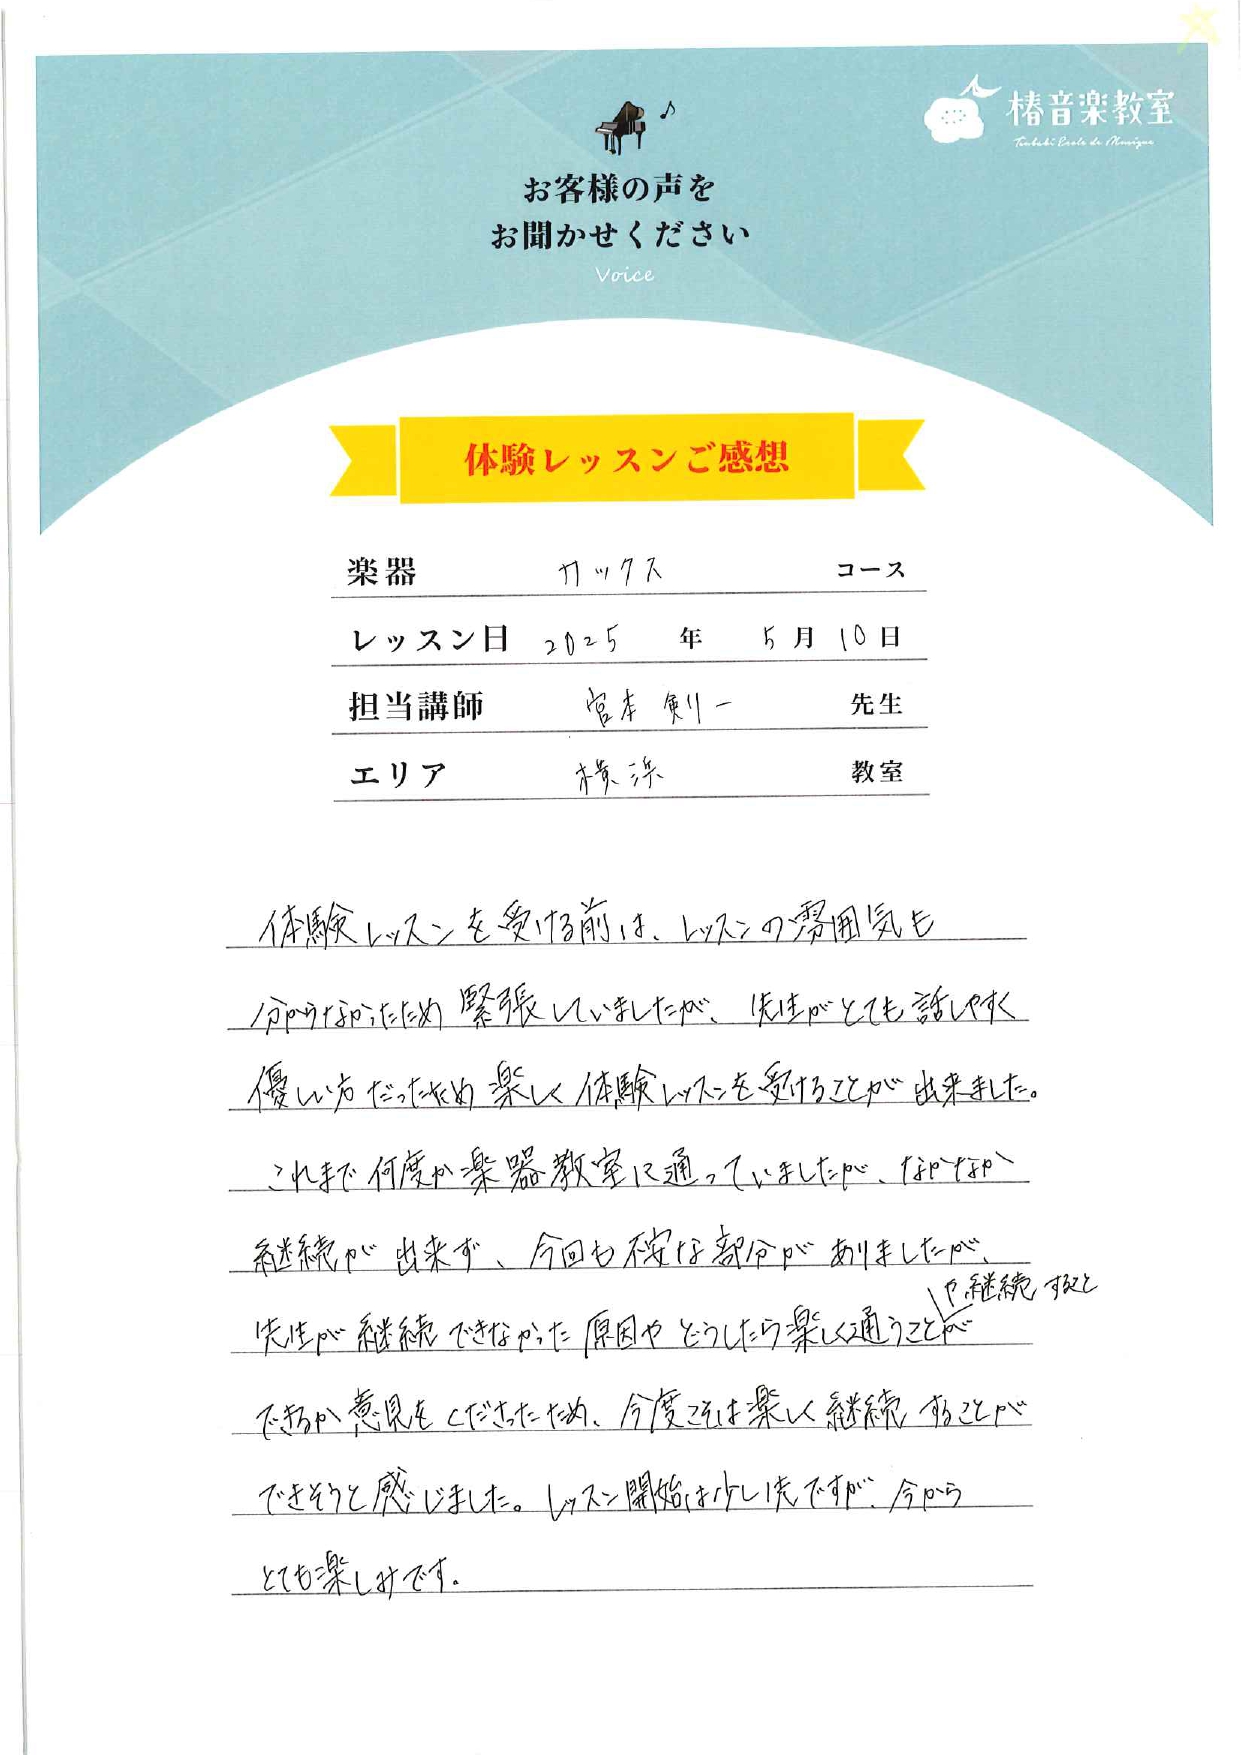 椿音楽教室
Tsubaki Ecole de Musique
お客様の声を
お聞かせください
Voice
体験レッスンご感想
楽器 サックス コース
レッスン日 2025 年 5月 10日
担当講師 宮本 剣一 先生
エリア 横浜 教室
体験レッスンを受ける前は、レッスンの雰囲気も
分からなかったため緊張していましたが、先生がとても話しやすく
優しい方だったため楽しく体験レッスンを受けることが出来ました。
これまで何度か楽器教室に通っていましたが、なかなか
継続が出来ず、今回も不安な部分がありましたが、
や継続すること
先生が継続できなかった原因やどうしたら楽しく通うことが
できるか意見をくださったため、今度こそは楽しく継続することが
できそうと感じました。レッスン開始は少し先ですが、今から
とても楽しみです。